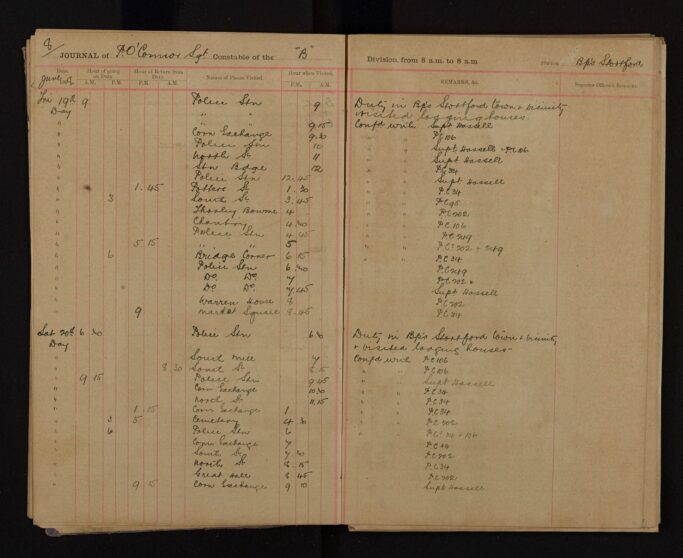 8
JOURNAL of P. O'Connor Sgt Constable of the "B" Division, from 8 a.m. to 8 a.m. Bp's Stortford
Date. Hour of going on Duty. Hour of Return from Duty. Names of Places Visited. Hour when Visited. REMARKS, &c. Superior Officer's Remarks.
A.M. P.M. P.M. A.M. P.M. A.M.
Fri 19th 9 Police Stn 9 Duty in Bp's Stortford Town & vicinity
Day visited lodging houses.
" " " 9.15 Conf'd with Supt Hassell
" Corn Exchange 9.30 " " PC 106
" Police Stn 10 " " Supt. Hassell & PC 106
" North St 11 " " Supt Hassell
" Stn Bdge 12 " " PC 34
" Police Stn 12.45 " " Supt Hassell
" 1.45 Potters St 1.30 " " PC 34
" 3 South St 3.45 " " PC 95
" Thorley Bourne 4 " " PC 202
" Chantry 4.30 " " PC 106
" Police Stn 4.45 " " PC 249
" 5 15 " " 5 " " PCs 202 + 249
" 6 Bridge Corner 6 15 " " PC 34
" Police Stn 6.30 PC 249
" Do. Do. 7 PC 202
" Do Do. 7.45 Supt Hassell
" Warren House 8 PC 202
" 9 Market Square 8.45 PC 34
Sat 20th 6.30 Police Stn 6.30 Duty in Bp's Stortford Town & vicinity
Day & visited lodging houses
" South Mill 7 Conf'd with PC 106
" 8 30 South St 8 15 " " PC 106
" 9 15 Police Stn 9 45 " " Supt Hassell
" Corn Exchange 10.30 " " PC 34
" North St 11.15 " " PC 34
" 1 15 Corn Exchange 1 " " PC 34
" 3 5 Cemetery 4 30 " " PC 202
" 6 Police Stn 6 " "
" Corn Exchange 7
" South St 7 30 PC 202
" North St 8.15 PC 34
" 8 45 PC 202
" 9 15 Corn Exchange 9 10 Supt Hassell